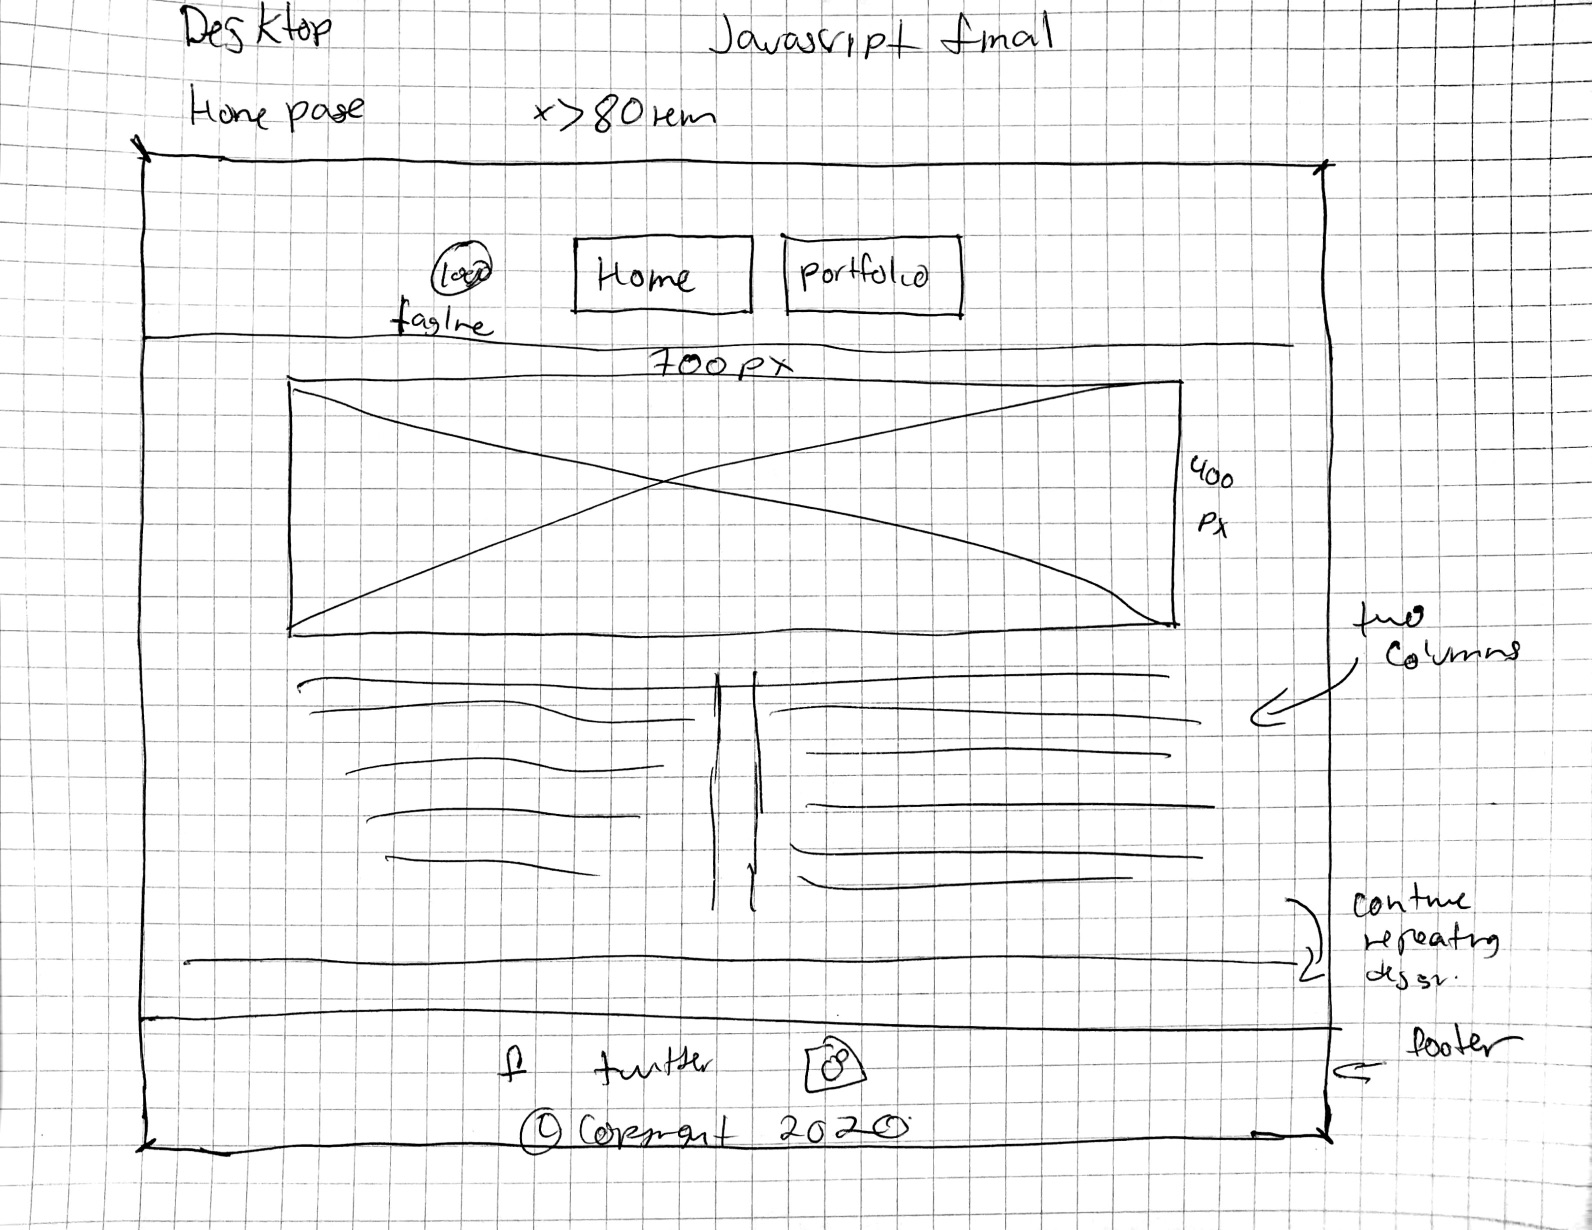 Desktop
Javascript final
Home page
x>80rem
logo
Home
portfolio
tagline
700px
400
px
two
columns
continue
repeating
footer
f twitter
© Copyright 2020